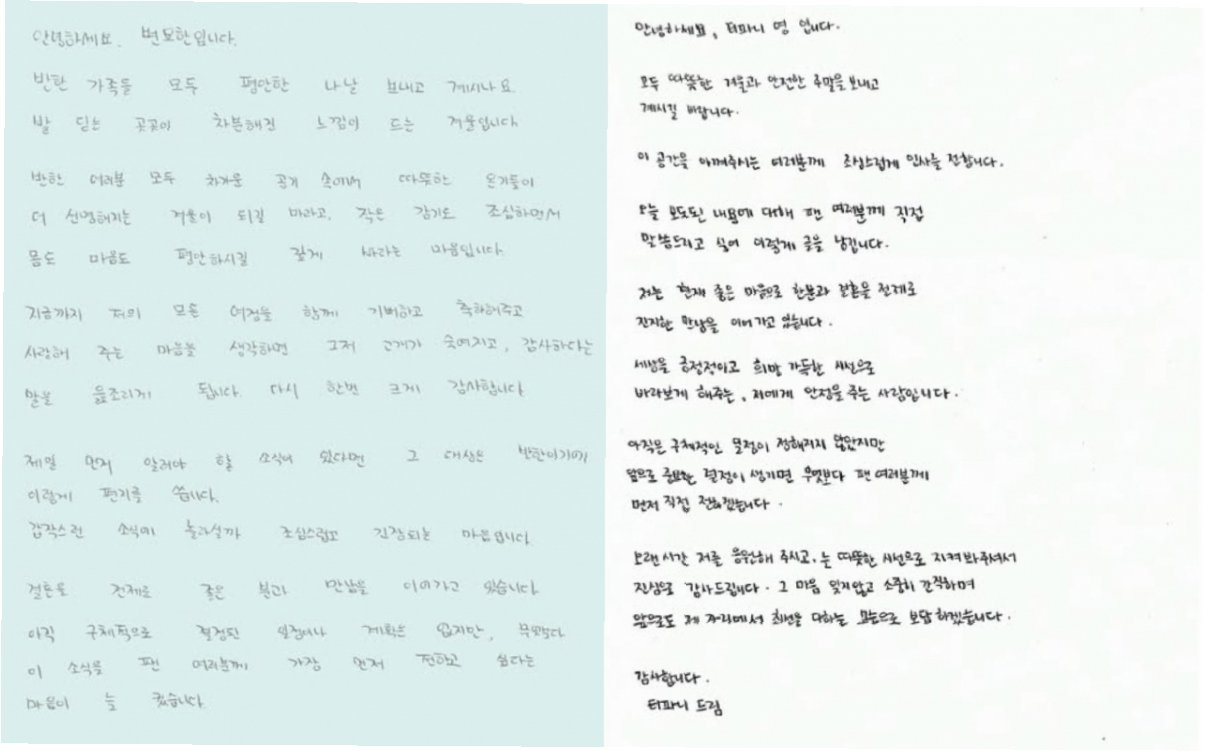 안녕하세요. 변요한입니다.
반한 가족들 모두 평안한 나날 보내고 계시나요.
발 딛는 곳곳이 차분해진 느낌이 드는 겨울입니다
반한 여러분 모두 차가운 공기 속에서 따뜻한 온기들이
더 선명해지는 겨울이 되길 바라고, 작은 감기도 조심하면서
몸도 마음도 평안하시길 깊게 바라는 마음입니다.
지금까지 저의 모든 여정을 함께 기뻐하고 축하해주고
사랑해 주는 마음을 생각하면 그저 고개가 숙여지고, 감사하다는
말을 읊조리게 됩니다. 다시 한번 크게 감사합니다
제일 먼저 알려야 할 소식이 있다면 그 대상은 반한이기에
이렇게 편지를 씁니다.
갑작스런 소식에 놀라실까 조심스럽고 긴장되는 마음입니다.
결혼을 전제로 좋은 분과 만남을 이어가고 있습니다.
아직 구체적으로 결정된 일정이나 계획은 없지만, 무엇보다
이 소식을 팬 여러분께 가장 먼저 전하고 싶다는
마음이 늘 컸습니다.
안녕하세요, 티파니 영 입니다.
모두 따뜻한 겨울과 안전한 주말을 보내고
계시길 바랍니다.
이 공간을 아껴주시는 여러분께 조심스럽게 인사를 전합니다.
오늘 보도된 내용에 대해 팬 여러분께 직접
말씀드리고 싶어 이렇게 글을 남깁니다.
저는 현재 좋은 마음으로 한분과 결혼을 전제로
진지한 만남을 이어가고 있습니다.
세상을 긍정적이고 희망 가득한 시선으로
바라보게 해주는, 저에게 안정을 주는 사람입니다.
아직은 구체적인 일정이 정해지지 않았지만
앞으로 중요한 결정이 생기면 무엇보다 팬 여러분께
먼저 직접 전하겠습니다.
오랜 시간 저를 응원해 주시고, 늘 따뜻한 시선으로 지켜봐주셔서
진심으로 감사드립니다. 그 마음 잊지않고 소중히 간직하며
앞으로도 제 자리에서 최선을 다하는 모습으로 보답하겠습니다.
감사합니다.
티파니 드림